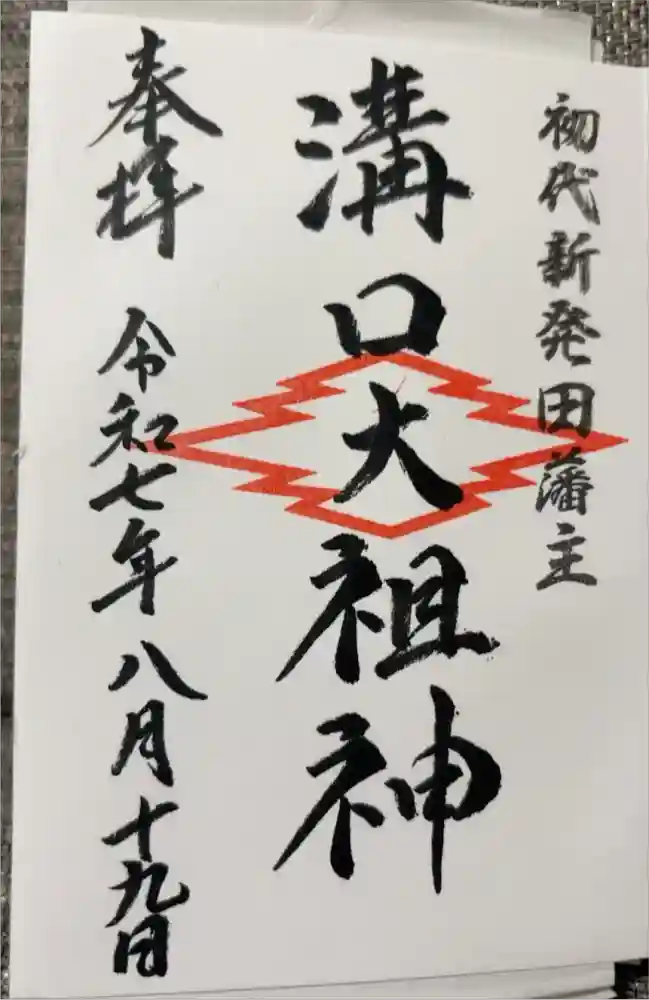 初代新発田藩主
溝口大祖神
奉拝 令和七年八月十九日